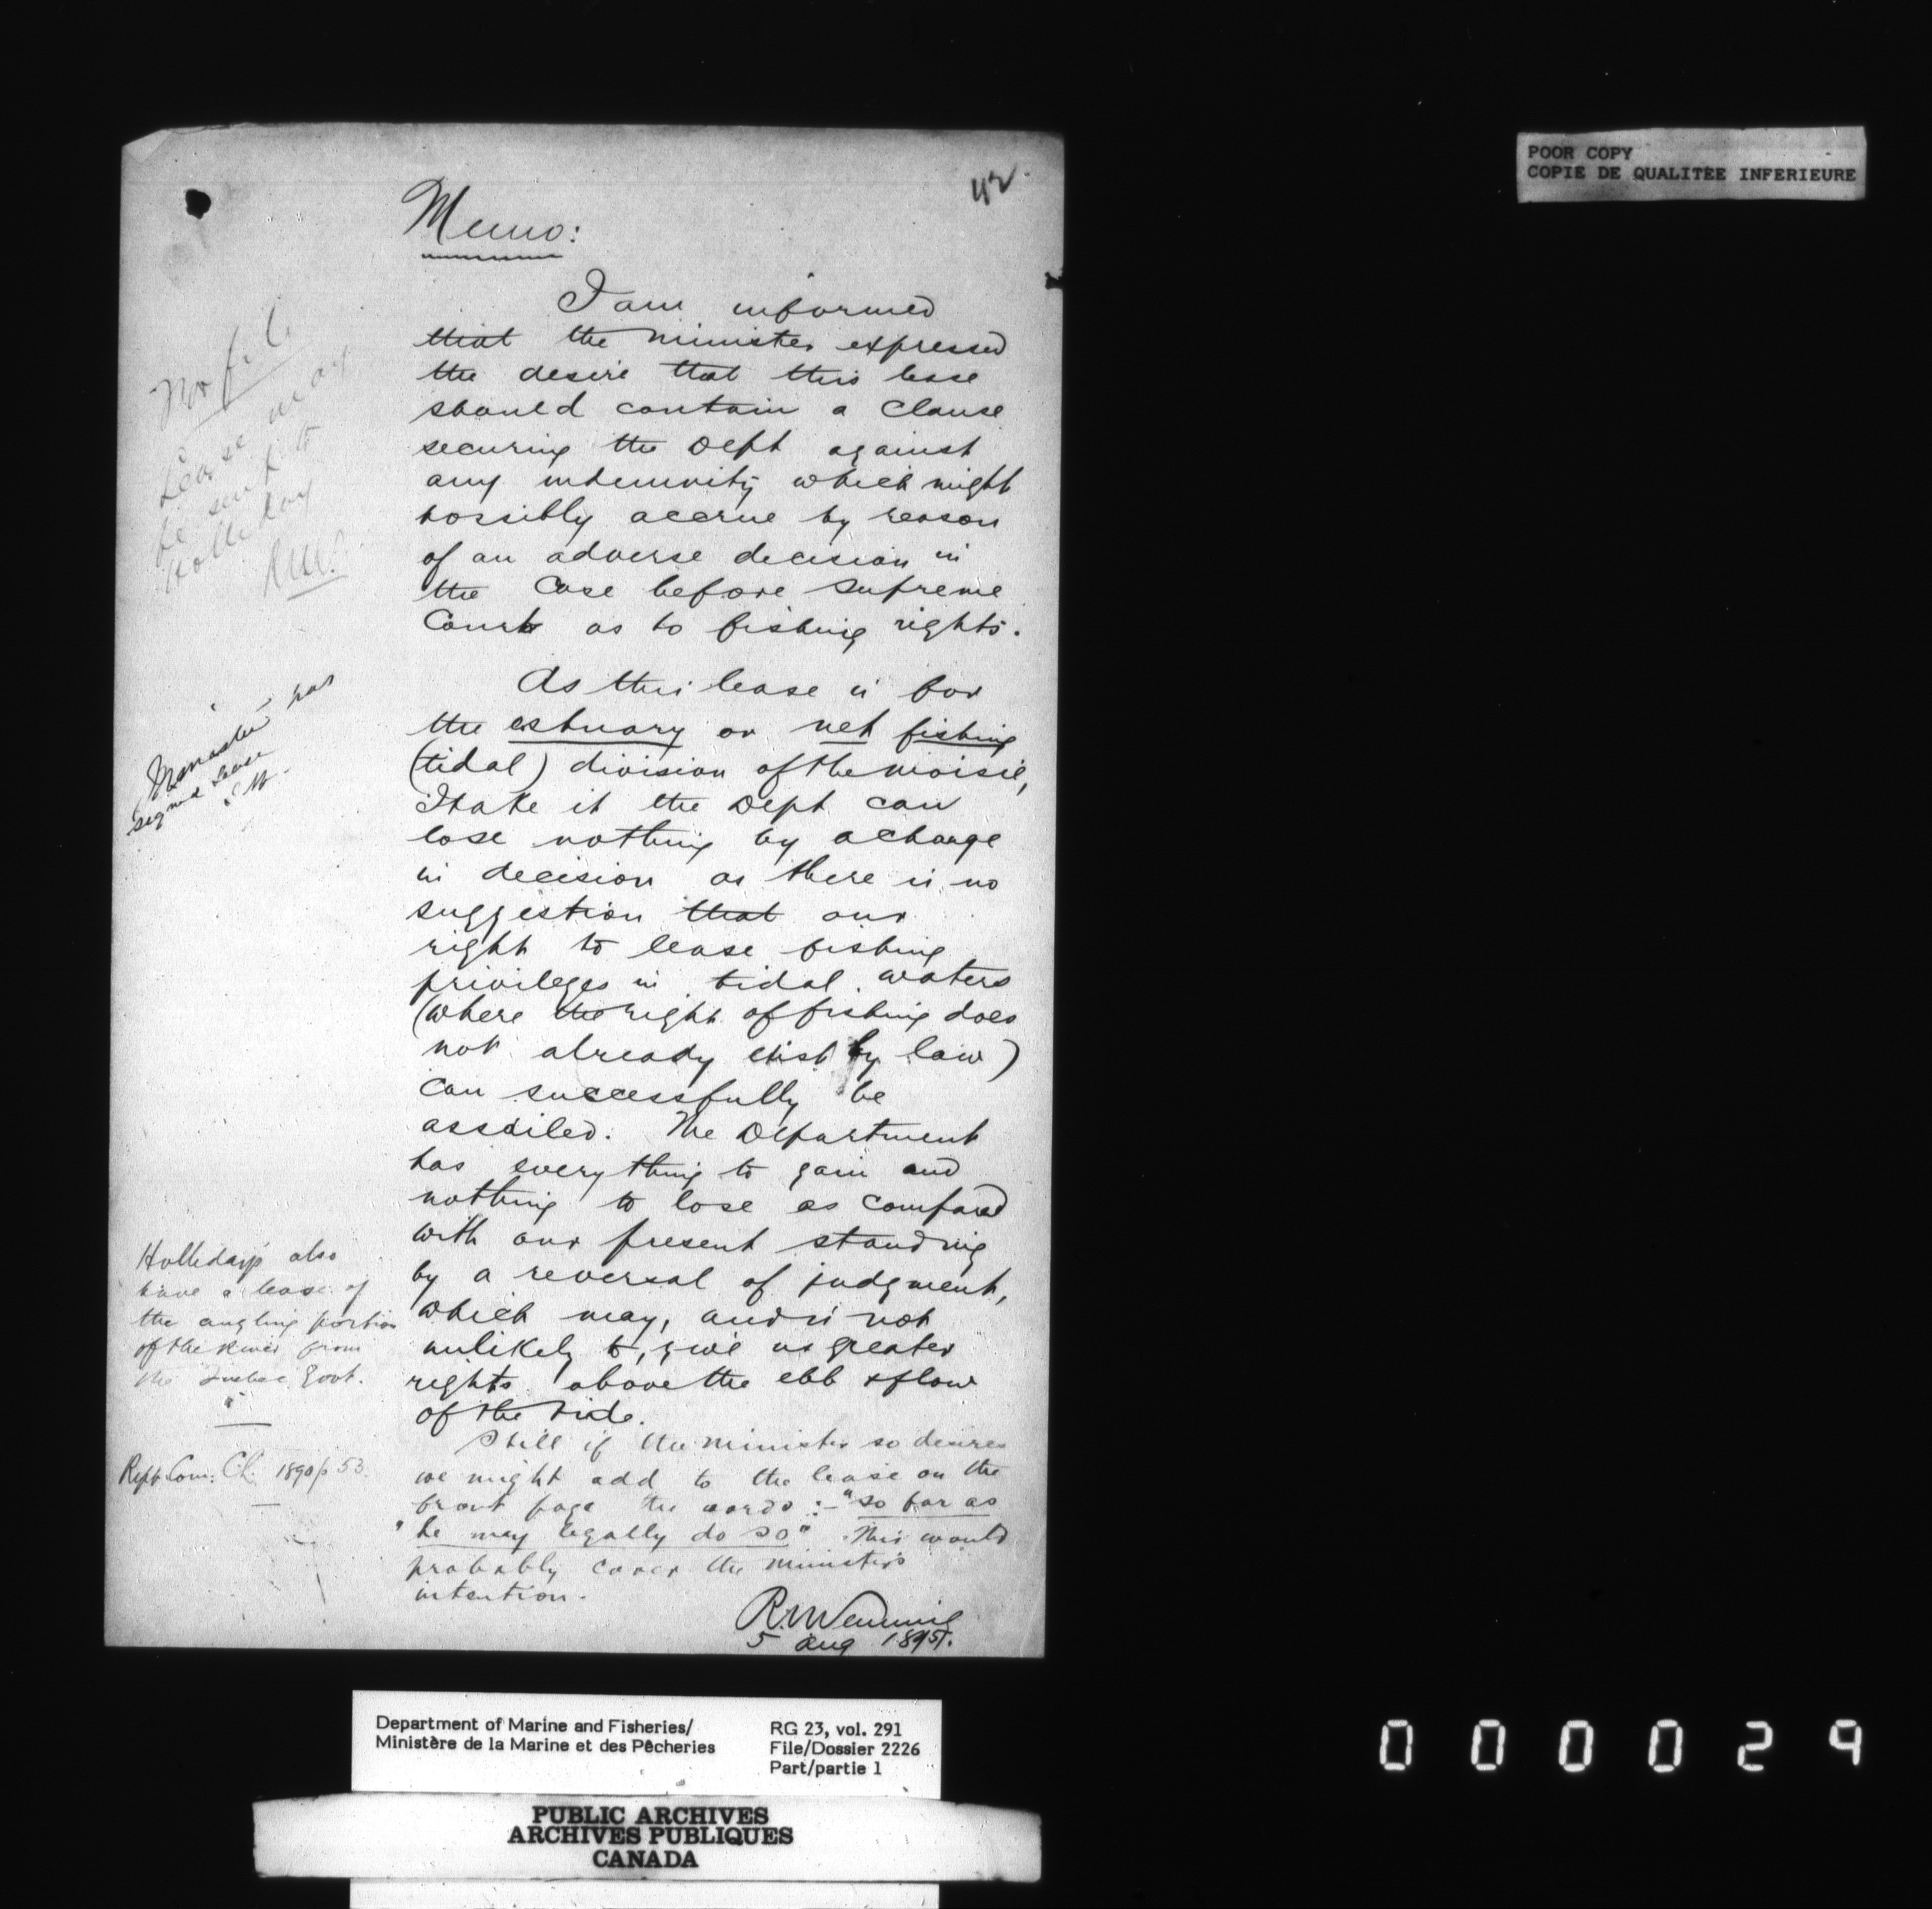 42
Memo:
I am informed
that the minister expressed
the desire that this lease
should contain a clause
securing the Dept against
any indemnity which might
possibly accrue by reason
of an adverse decision in
the Case before Supreme
Court as to fishing rights.
As this lease is for
the estuary or net fishing
(tidal) division of the moisie,
I take it the Dept can
lose nothing by a change
in decision as there is no
suggestion that our
right to lease fishing
privileges in tidal waters
(where the right of fishing does
not already exist by law)
can successfully be
assailed. The Department
has everything to gain and
nothing to lose as compared
with our present standing
by a reversal of judgment,
which may, and is not
unlikely to, give us greater
rights above the ebb & flow
of the tide.
Still if the minister so desires
we might add to the lease on the
front page the words :- "so far as
"he may legally do so" This would
probably cover the minister's
intention.
5 Aug 1895.
Lease may
be sent to
Holliday
has
signed lease
Hollidays also
have a lease of
the angling portion
of the River from
the Quebec Govt.
1890 p 53.
POOR COPY
COPIE DE QUALITEE INFERIEURE
Department of Marine and Fisheries/
Ministère de la Marine et des Pêcheries
RG 23, vol. 291
File/Dossier 2226
Part/partie 1
PUBLIC ARCHIVES
ARCHIVES PUBLIQUES
CANADA
000029